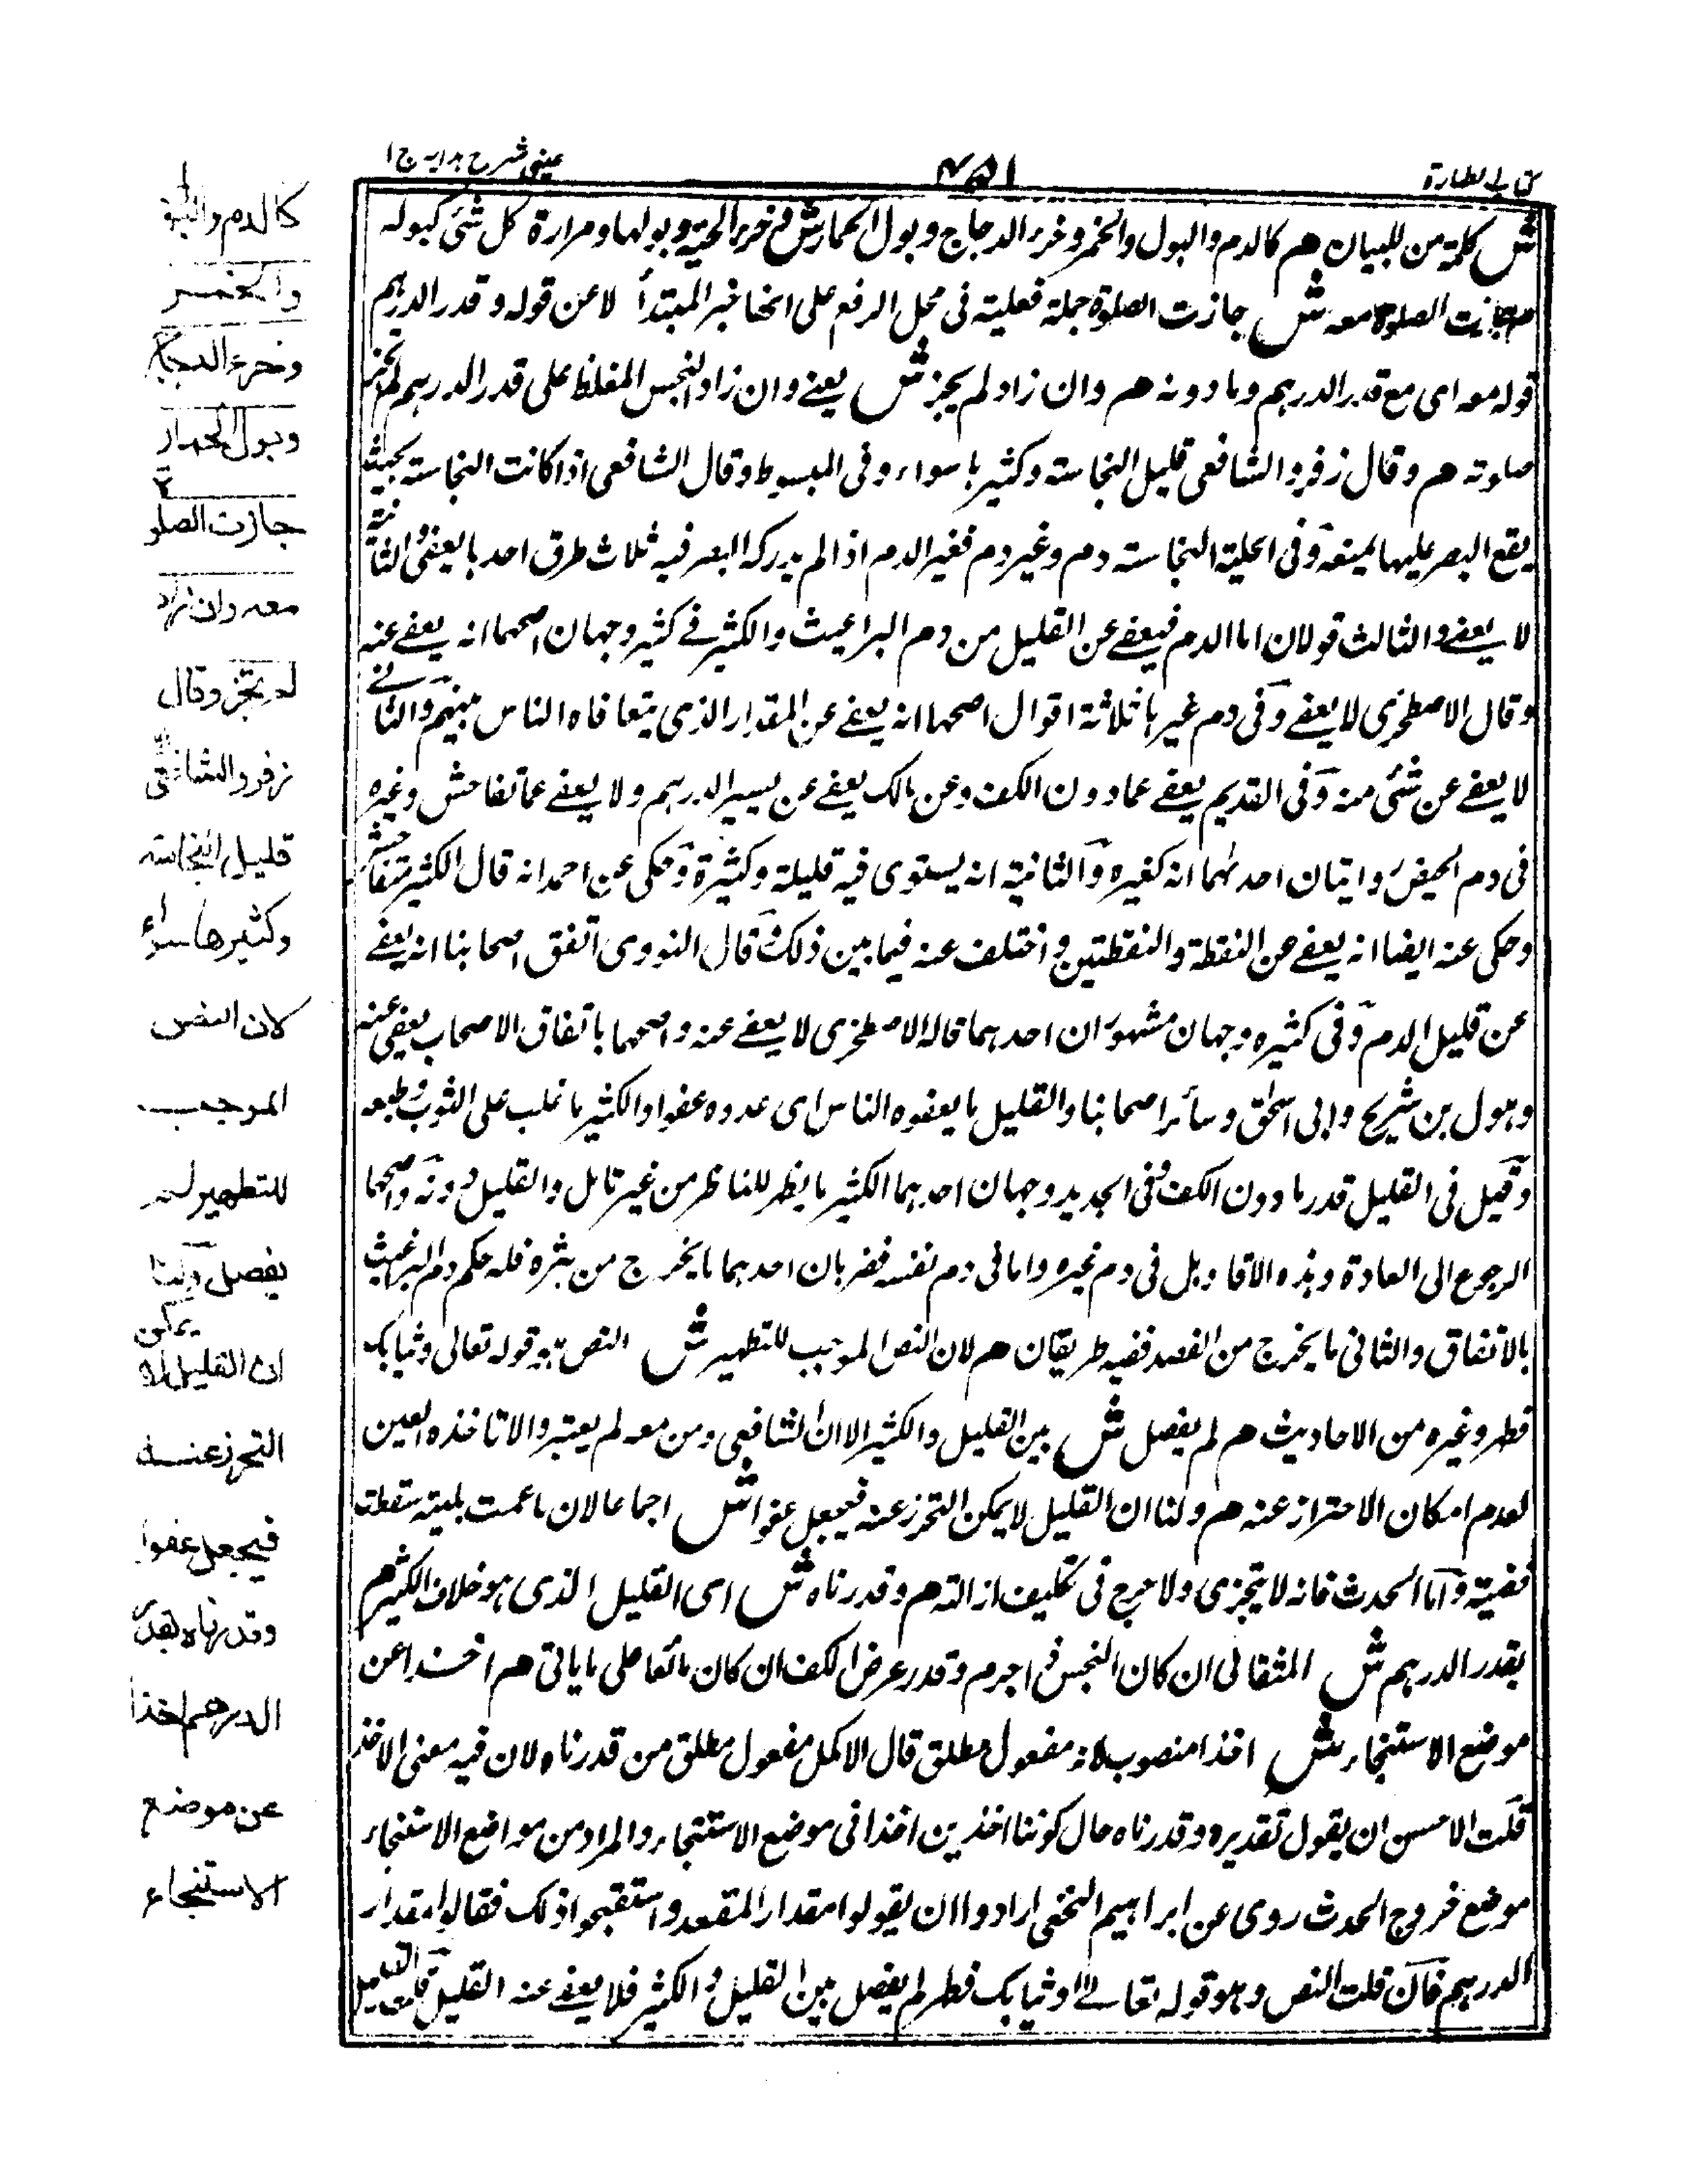 كتاب الطهارة
٤٥١
عيني شرح هدايه ج ا
ش كلمة من للبيان هم كالدم والبول والخمر وخرء الدجاج وبول الحمار ش وخرء الحية وبولها ومرارة كل شئ كبوله
هم جازت الصلوة معه ش جازت الصلوة جملة فعلية فى محل الرفع على انها خبر المبتدأ لا عن قوله وقدر الدرهم
قوله معه اى مع قدر الدرهم وما دونه هم وان زاد لم يجز ش يعنے وان زاد النجس المغلظ على قدر الدرهم لم تجز
صلوته هم وقال زفر والشافعى قليل النجاسة وكثيرها سواء وفى المبسوط وقال الشافعى اذا كانت النجاسة بحيث
يقع البصر عليها يمنع وفى الحلية النجاسة دم وغير دم فغير الدم اذا لم يدركه البصر فيه ثلاث طرق احدها يعفى والثانية
لا يعفے والثالث قولان اما الدم فيعفے عن القليل من دم البراغيث والكثير فے كثيره وجهان اصحهما انه يعفے عنه
وقال الاصطخرى لا يعفے وفى دم غيرها ثلاثة اقوال اصحها انه يعفے عن المقدار الذى يتعافاه الناس بينهم والثانے
لا يعفے عن شئ منه وفى القديم يعفے عما دون الكف وعن مالك يعفے عن يسير الدرهم ولا يعفے عما تفاحش وغيره
فى دم الحيض روايتان احدهما انه كغيره والثانية انه يستوى فيه قليلة وكثيرة وحكى عن احمد انه قال الكثير متفاحش
وحكى عنه ايضا انه يعفے عن النقطة والنقطتين واختلف عنه فيما بين ذلك قال النووى اتفق اصحابنا انه يعفے
عن قليل الدم وفى كثيره وجهان مشهوران احدهما قاله الاصطخرى لا يعفے عنه واصحهما باتفاق الاصحاب يعفى عنه
وهو قول بن شريح وابى اسحق وسائر اصحابنا والقليل ما يعفوه الناس اى عدوه عفوا والكثير ما غلب على الثوب وطبعه
وقيل فى القليل قدر ما دون الكف وفى الجديد وجهان احدهما الكثير ما يظهر للناظر من غير تامل والقليل دونه واصحهما
الرجوع الى العادة وهذه الاقاويل فى دم غيره واما فى دم نفسه فضربان احدهما ما يخرج من بثره فله حكم دم البراغيث
بالاتفاق والثانى ما يخرج من الفصد ففيه طريقان هم لان النص الموجب للتطهير ش النص هو قوله تعالى وثيابك
فطهر وغيره من الاحاديث هم لم يفصل ش بين القليل والكثير الا ان الشافعى ومن معه لم يعتبروا ما لا تاخذه العين
لعدم امكان الاحتراز عنه هم ولنا ان القليل لا يمكن التحرز عنه فيجعل عفوا ش اجماعا لان ما عمت بليته سقطت
قضيته واما الحدث فانه لا يتجزى ولا حرج فى تكليف ازالته هم وقدرناه ش اى القليل الذى هو خلاف الكثير هم
بقدر الدرهم ش المثقالى ان كان النجس ذا جرم وقدر عرض الكف ان كان مائعا على ما ياتى هم اخذا عن
موضع الاستنجاء ش اخذا منصوب لانه مفعول مطلق قال الاكمل مفعول مطلق من قدرناه لان فيه معنى الاخذ
قلت الاحسن ان يقول تقديره وقدرناه حال كوننا اخذين اخذا فى موضع الاستنجاء والمراد من مواضع الاستنجاء
موضع خروج الحدث روى عن ابراهيم النخعى ارادوا ان يقولوا مقدار المقعد واستقبحوا ذلك فقالوا مقدار
الدرهم فان قلت النص وهو قوله تعالے وثيابك فطهر لم يفصل بين القليل والكثير فلا يعفے عنه القليل قلت القليل
كالدم والبول
والخمر
وخرء الدجاج
وبول الحمار
جازت الصلوة
معه وان زاد
لم يجز وقال
زفر والشافعى
قليل النجاسة
وكثيرها سواء
لان النص
الموجب
للتطهير لم
يفصل ولنا
ان القليل لا يمكن
التحرز عنه
فيجعل عفوا
وقدرناه بقدر
الدرهم اخذا
عن موضع
الاستنجاء